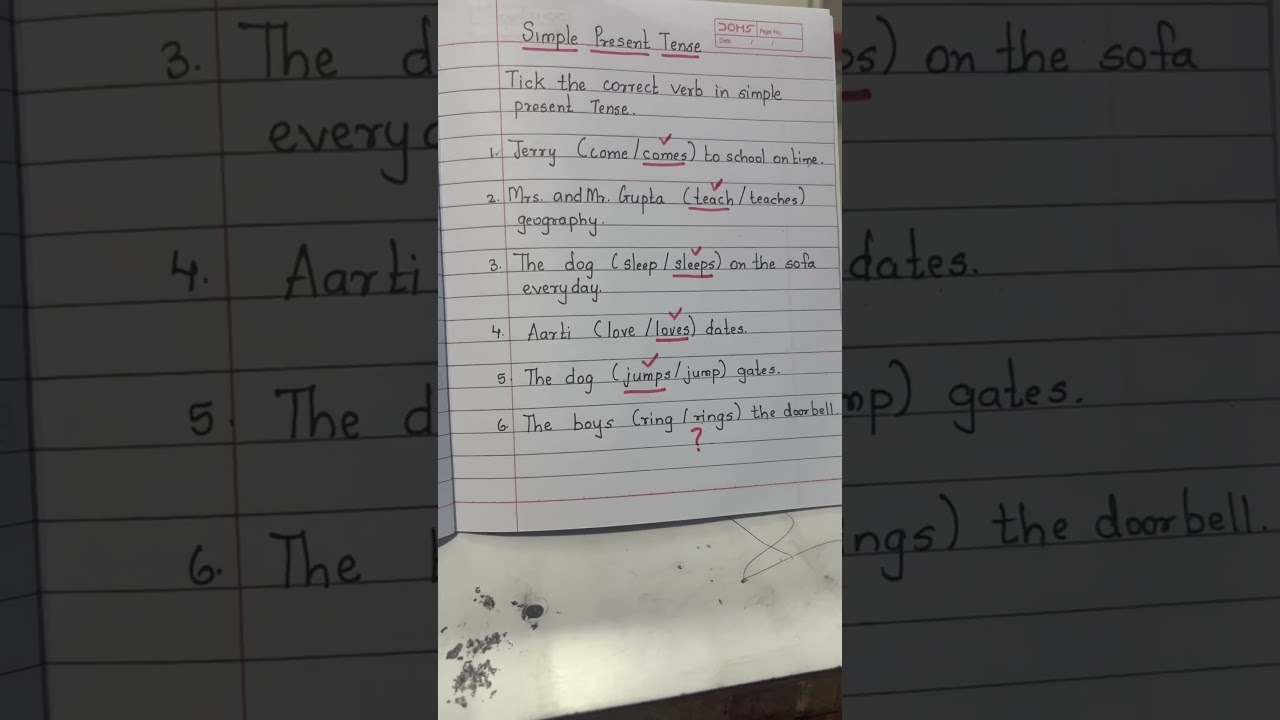 Simple Present Tense
DOMS Page No.
Date / /
Tick the correct verb in simple
present Tense.
1. Jerry (come/comes) to school on time.
2. Mrs. and Mr. Gupta (teach/teaches)
geography.
3. The dog (sleep/sleeps) on the sofa
everyday.
4. Aarti (love/loves) dates.
5. The dog (jumps/jump) gates.
6. The boys (ring/rings) the doorbell.
?